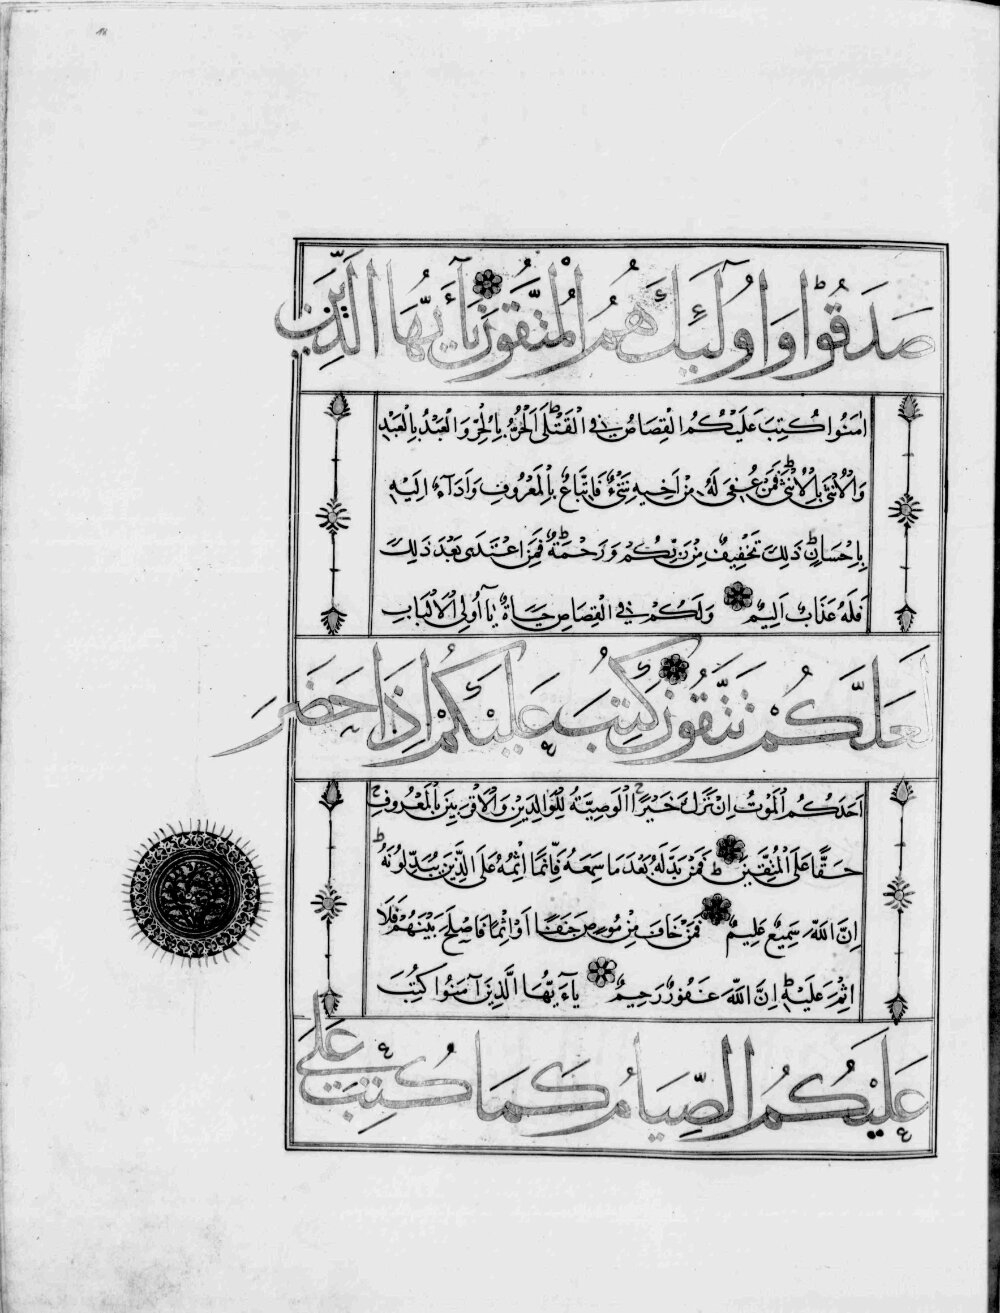 صَدَقُوا وَاُولَٰئِكَ هُمُ الْمُتَّقُونَ يَآ أَيُّهَا الَّذِينَ
اٰمَنُوا كُتِبَ عَلَيْكُمُ الْقِصَاصُ فِي الْقَتْلَى اَلْحُرُّ بِالْحُرِّ وَالْعَبْدُ بِالْعَبْدِ
وَالْاُنْثَى بِالْاُنْثَى فَمَنْ عُفِيَ لَهُ مِنْ اَخِيهِ شَيْءٌ فَاتِّبَاعٌ بِالْمَعْرُوفِ وَاَدَآءٌ اِلَيْهِ
بِاِحْسَانٍ ذَلِكَ تَخْفِيفٌ مِنْ رَبِّكُمْ وَرَحْمَةٌ فَمَنِ اعْتَدَى بَعْدَ ذَلِكَ
فَلَهُ عَذَابٌ اَلِيمٌ وَلَكُمْ فِي الْقِصَاصِ حَيَاةٌ يَآ اُولِي الْاَلْبَابِ
لَعَلَّكُمْ تَتَّقُونَ كُتِبَ عَلَيْكُمْ اِذَا حَضَرَ
اَحَدَكُمُ الْمَوْتُ اِنْ تَرَكَ خَيْرًا الْوَصِيَّةُ لِلْوَالِدَيْنِ وَالْاَقْرَبِينَ بِالْمَعْرُوفِ
حَقًّا عَلَى الْمُتَّقِينَ فَمَنْ بَدَّلَهُ بَعْدَ مَا سَمِعَهُ فَاِنَّمَا اِثْمُهُ عَلَى الَّذِينَ يُبَدِّلُونَهُ
اِنَّ اللّٰهَ سَمِيعٌ عَلِيمٌ فَمَنْ خَافَ مِنْ مُوصٍ جَنَفًا اَوْ اِثْمًا فَاَصْلَحَ بَيْنَهُمْ فَلَا
اِثْمَ عَلَيْهِ اِنَّ اللّٰهَ غَفُورٌ رَحِيمٌ يَآءَيُّهَا الَّذِينَ آمَنُوا كُتِبَ
عَلَيْكُمُ الصِّيَامُ كَمَا كُتِبَ عَلَى